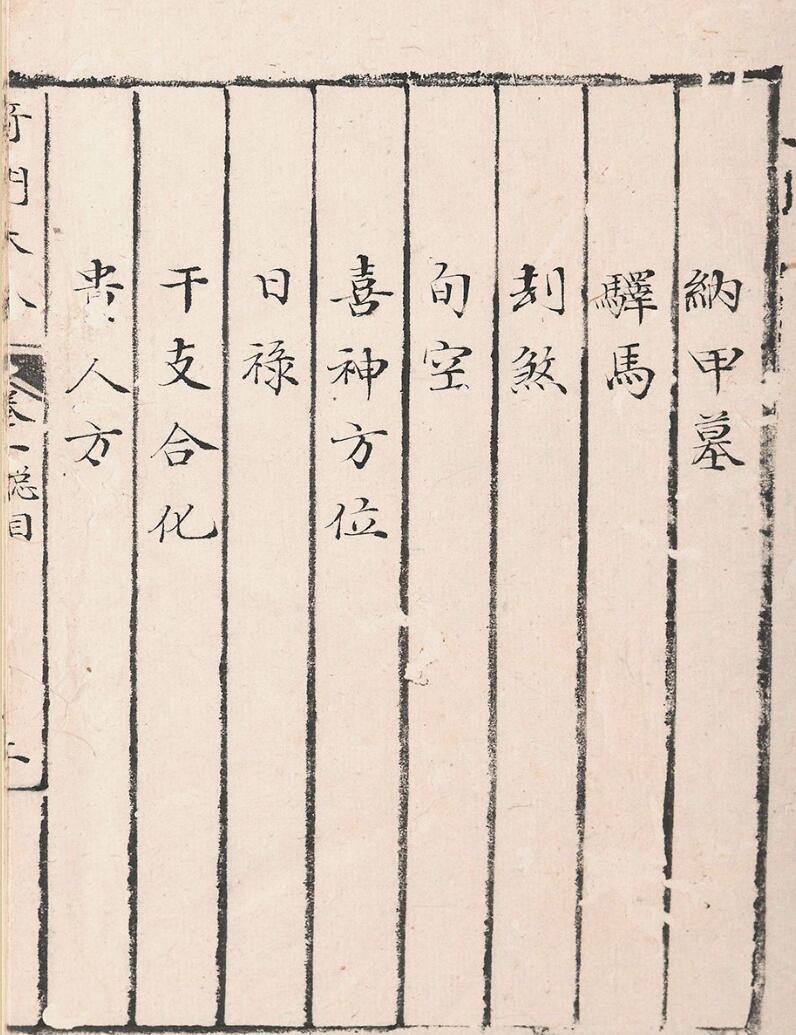 納甲墓
驛馬
刦煞
旬空
喜神方位
日祿
干支合化
貴人方
奇門大全
卷一總目